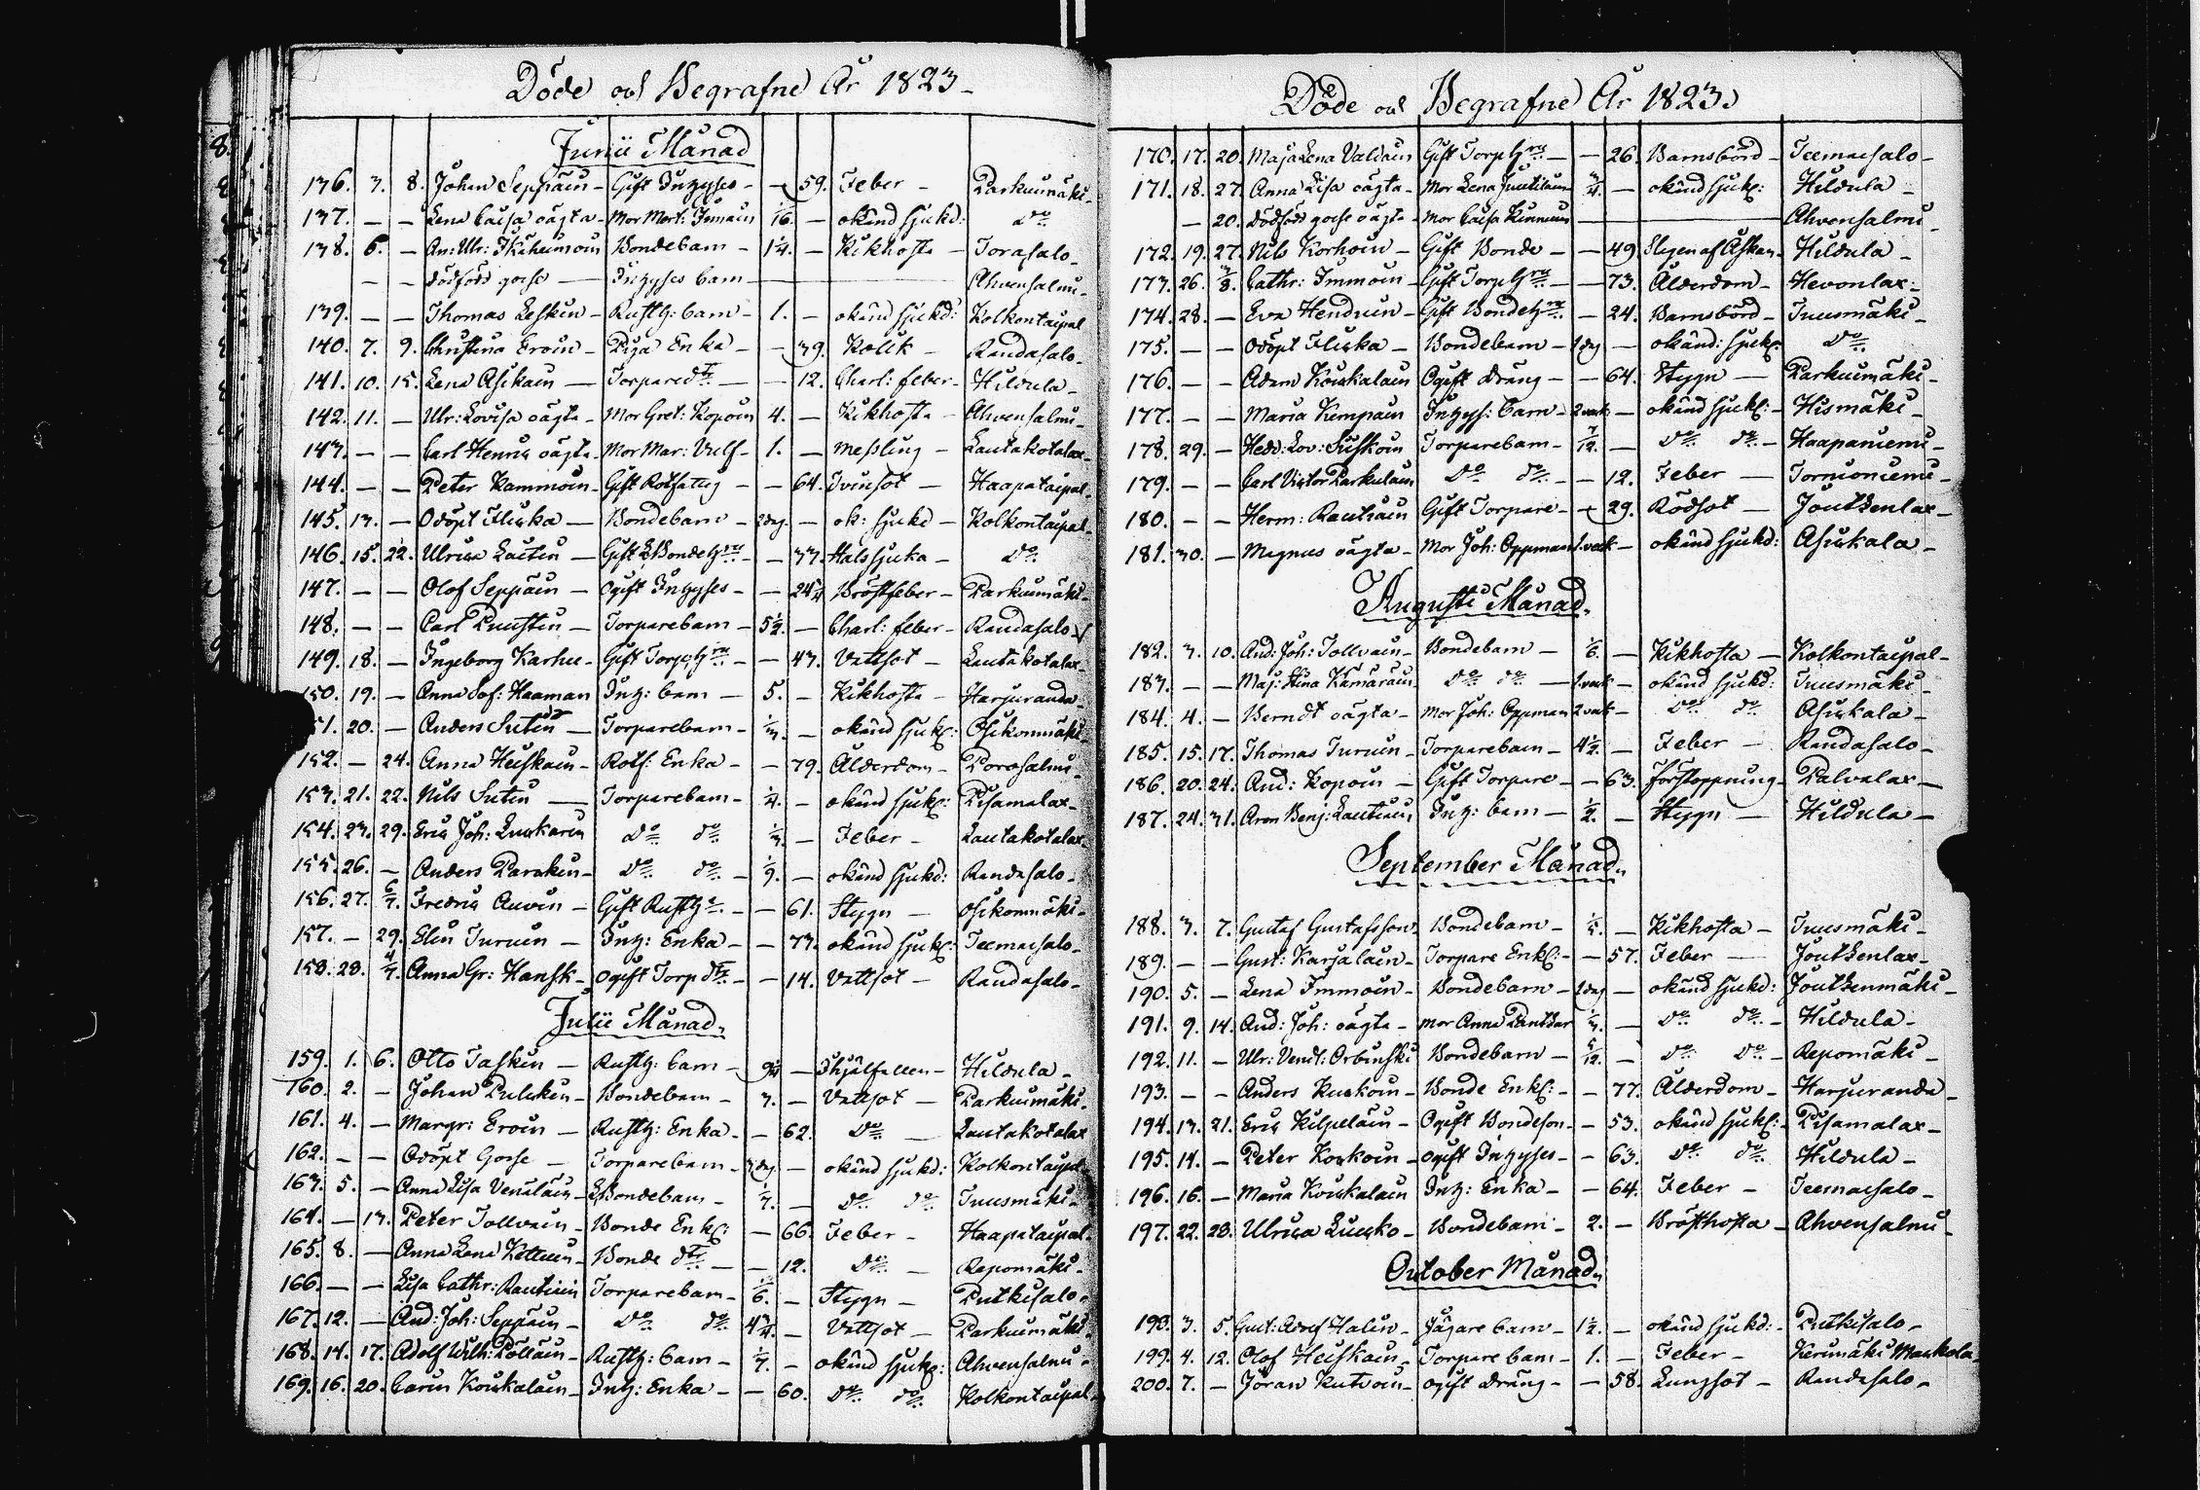 Döde och Begrafne År 1823
Junii Månad
136. 3. 8. Johan Seppäin Gift Inhyses 59. Feber Parkuimäki
137. Lena Caisa oägta Mor Mort: Immoin okänd sjukd: Do
138. 6. An: Ulr: Ikäheimoin Bondebarn 1 1/4. Kikhosta Torasalo
dödfödd gosse Inhyses barn Ahvensalmi
139. Thomas Leskin Rusth: barn 1. okänd sjukd: Kolkontaipal
140. 7. 9. Christina Eroin Piga Enka 39. Kolik Randasalo
141. 10. 15. Lena Asikain Torpare dtr 12. Charl: feber Hildula
142. 11. Ulr: Lovisa oägta Mor Gret: Kopoin 4. Kikhosta Ahvensalmi
143. Carl Henric oägta Mor Mar: Vulf 1. Messling Lautakotalax
144. Peter Kammoin Gift Rotfattig 64. Tvinsot Haapataipal
145. 13. Odöpt Flicka Bondebarn 2 dag. ok: sjukd Kolkontaipal
146. 15. 22. Ulrica Laitin Gift Bondehru 33. Halssjuka Do
147. Olof Seppäin Ogift Inhyses 24 Bröstfeber Parkuimäki
148. Carl Puustin Torparebarn 5 1/2. Charl: feber Randasalo
149. 18. Ingeborg Karhu Gift Torp: hru 43. Vattsot Lautakotalax
150. 19. Anna Sof: Haaman Inh: barn 5. Kikhosta Harjuranda
151. 20. Anders Sutin Torparebarn 1/3. okänd sjukd: Osikonmäki
152. 24. Anna Heiskain Rotf: Enka 79. Ålderdom Porosalmi
153. 21. 22. Nils Sutin Torparebarn 1/4. okänd sjukd: Pisamalax
154. 23. 29. Eric Joh: Luukarin Do do 1/3. Feber Lautakotalax
155. 26. Anders Parckin Do do 1/9. okänd sjukd: Randasalo
156. 27. 6/7. Fredric Auvin Gift Rusth: 61. Stygn Osikonmäki
157. 29. Elin Turuin Inh: Enka 73. okänd sjukd: Teemassalo
158. 28. 4/7. Anna Gr: Hansk Ogift Torp dtr 14. Vattsot Randasalo
Julii Månad
159. 1. 6. Otto Taskin Rusth: barn Ihjälfallen Hildula
160. 2. Johan Pulckin Bondebarn 3. Vattsot Parkuimäki
161. 4. Margr: Eroin Rusth: Enka 62. Do Lautakotalax
162. Odöpt Gosse Torparebarn 3 dag okänd sjukd: Kolkontaipal
163. 5. Anna Lisa Venäläin Bondebarn Do do Tuusmäki
164. 13. Peter Tollvain Bonde Enkl: 66. Feber Haapataipal
165. 8. Anna Lena Kettuin Bonde dtr 12. Do Repomäki
166. Lisa Cathr: Rautiain Torparebarn 1/6. Stygn Putkisalo
167. 12. And: Joh: Seppäin Do do 4 3/4. Vattsot Parkuimäki
168. 14. 17. Adolf Wilh: Pölläin Rusth: barn 1/7. okänd sjukd: Ahvensalmi
169. 16. 20. Carin Koickalain Inh: Enka 60. Do do Kolkontaipal
Döde och Begrafne År 1823
170. 17. 20. Maja Lena Valdain Gift Torp hru 26. Barnsbörd Teemassalo
171. 18. 27. Anna Lisa oägta Mor Lena Juutilain 3/4. okänd sjukd: Hildula
20. dödfödd gosse oägta Mor Caisa Kinnuin Ahvensalmi
172. 19. 27. Nils Korhoin Gift Bonde 49 Slagen af Åskan Hildula
173. 26. 3/8. Cathr: Immoin Gift Torp hru 73. Ålderdom Hevonlax
174. 28. Eva Henduin Gift Bondehru 24. Barnsbörd Tuusmäki
175. Odöpt Flicka Bondebarn 1 dag okänd: sjukd: Do
176. Adam Koickalain Ogift dräng 64. Stygn Parkuimäki
177. Maria Kempain Inhys: barn 2 veck okänd sjukd: Hismäki
178. 29. Hedv: Lov: Suhkoin Torparebarn 7/12. Do do Haapaniemi
179. Carl Victor Parkulain Do do 12. Feber Torniomiemi
180. Herm: Rautiain Gift Torpare 29. Rödsot Joutsenlax
181. 30. Magnus oägta Mor Joh: Oppman 1. veck okänd sjukd: Asickala
Augusti Månad
182. 3. 10. And: Joh: Tollvain Bondebarn 1/6. Kikhosta Kolkontaipal
183. Maj: Stina Kämäräin Do do 1. veck okänd sjukd: Tuusmäki
184. 4. Berndt oägta Mor Joh: Oppman 2 veck Do do Asickala
185. 15. 17. Thomas Turuin Torparebarn 4 1/2. Feber Randasalo
186. 20. 24. And: Kopoin Gift Torpare 63. förstoppning Palvalax
187. 24. 31. Aron Benj: Lautiain Inh: barn 1/2. Stygn Hildula
September Månad
188. 3. 7. Gustaf Gustafsson Bondebarn 1/5. Kikhosta Tuusmäki
189. Gust: Karjalain Torpare Enkl: 57. Feber Joutsenlax
190. 5. Lena Immoin Bondebarn 2 dag okänd sjukd: Joutsenmäki
191. 9. 14. And: Joh: oägta Mor Anna Pantsar 1/3. Do do Hildula
192. 11. Ulr: Vendl: Orbinski Bondebarn 5/12. Do Do Repomäki
193. Anders Kuckoin Bonde Enkl: 77. Ålderdom Harjuranda
194. 13. 21. Eric Kilpeläin Ogift Bondeson 53. okänd sjukd: Pisamalax
195. 14. Peter Kockoin Ogift Inhyses 63. Do do Hildula
196. 16. Maria Koickalain Inh: Enka 64. Feber Teemassalo
197. 22. 28. Ulrica Luucko Bondebarn 2. Brösthosta Ahvensalmi
October Månad
198. 3. 5. Gust: Adolf Halin Jägare barn 1 1/2. okänd sjukd: Putkisalo
199. 4. 12. Olof Heiskain Torpare barn 1. Feber Kerimäki Mackola
200. 7. Jöran Kutvoin ogift dräng 58. Lungsot Randasalo